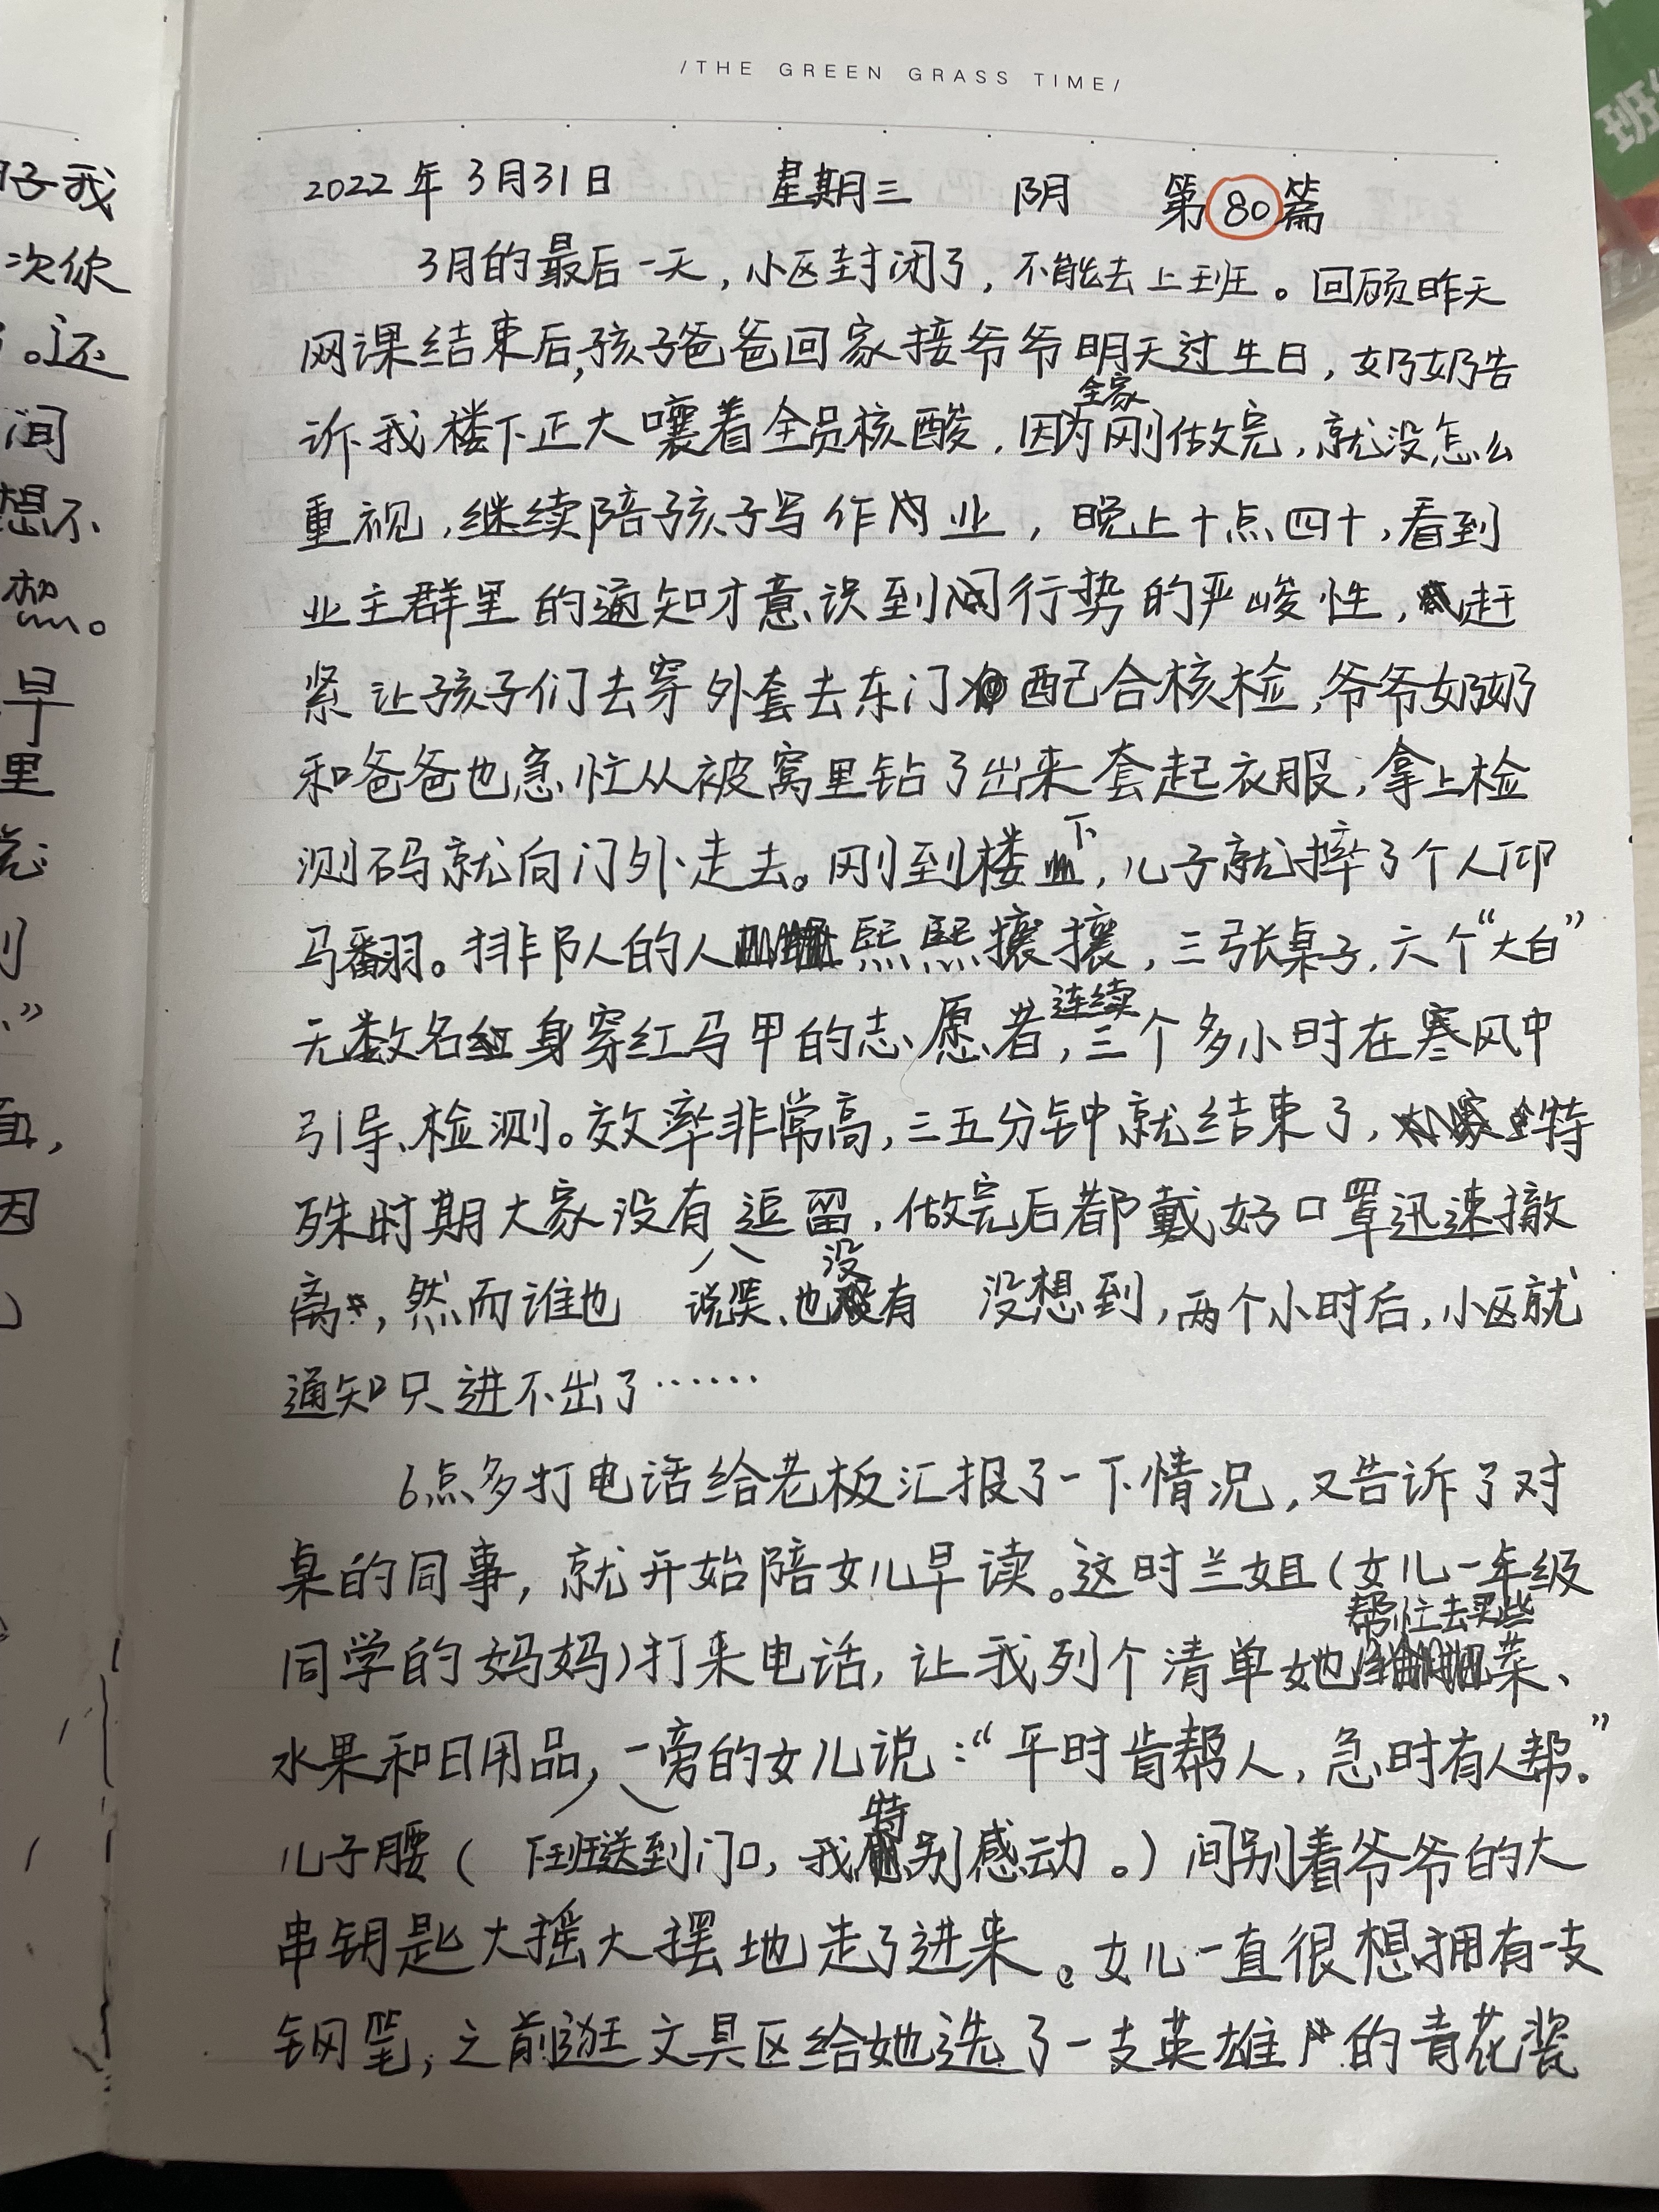 /THE GREEN GRASS TIME/
2022年3月31日 星期三 阴 第80篇
3月的最后一天，小区封闭了，不能去上班。回顾昨天
网课结束后，孩子爸爸回家接爷爷明天过生日，奶奶告
全家
诉我楼下正大嚷着全员核酸，因为刚做完，就没怎么
重视，继续陪孩子写作业，晚上十点四十，看到
业主群里的通知才意识到行势的严峻性，赶
紧让孩子们去穿外套去东门配合核检，爷爷奶奶
和爸爸也急忙从被窝里钻了出来套起衣服，拿上检
下
测码就向门外走去。刚到楼，儿子就摔了个人仰
马翻。排队的人熙熙攘攘，三张桌子，六个“大白”
连续
无数名身穿红马甲的志愿者，三个多小时在寒风中
引导、检测。效率非常高，三五分钟就结束了，特
殊时期大家没有逗留，做完后都戴好口罩迅速撤
没
离，然而谁也 说笑、也有 没想到，两个小时后，小区就
通知只进不出了……
6点多打电话给老板汇报了一下情况，又告诉了对
桌的同事，就开始陪女儿早读。这时兰姐（女儿一年级
帮忙去买些
同学的妈妈）打来电话，让我列个清单她菜、
水果和日用品，一旁的女儿说：“平时肯帮人，急时有人帮。”
特
儿子腰（下班送到门口，我别感动。）间别着爷爷的大
串钥匙大摇大摆地走了进来。女儿一直很想拥有一支
钢笔，之前逛文具区给她选了一支英雄的青花瓷
子我
次你
。还
间
想不
早
里
因
班